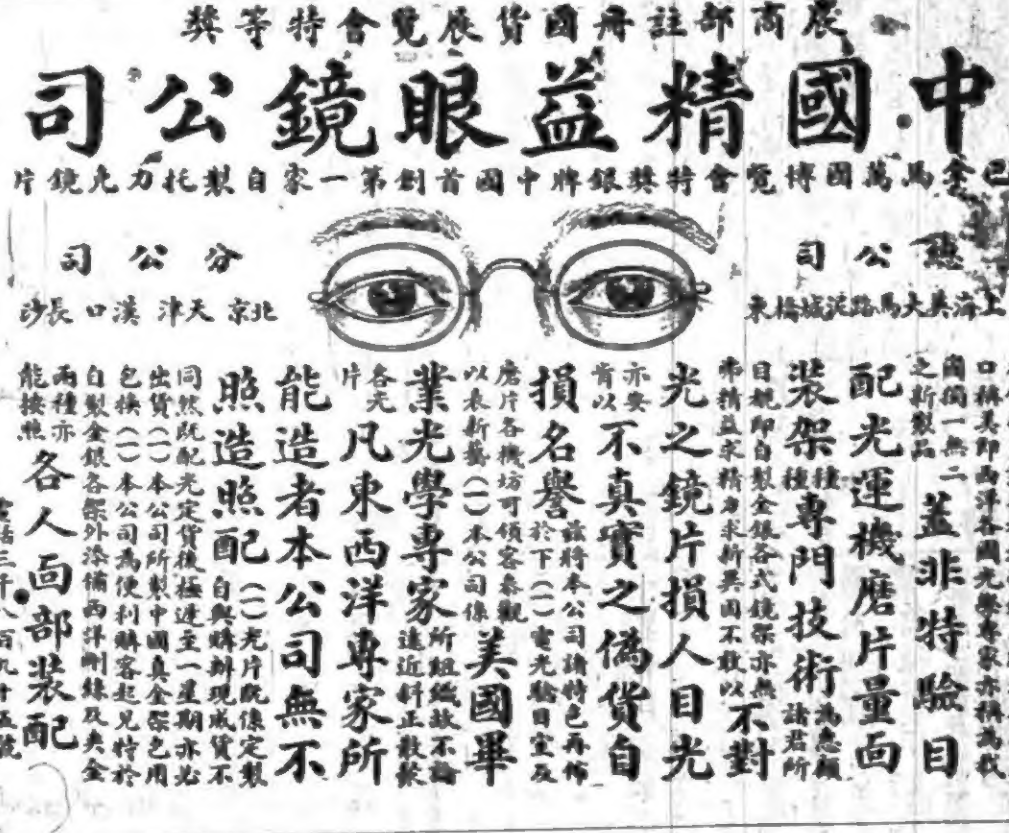 農商部註冊國貨展覽會特等獎
中國精益眼鏡公司
巴拿馬萬國博覽會特獎銀牌中國首創第一家自製托力克鏡片
總公司
上海英大馬路泥城橋東
分公司
北京 天津 漢口 長沙
口稱美即西洋各國光學專家亦稱為我
國獨一無二之新製品蓋非特驗目
配光運機磨片量面
裝架種種專門技術為惠顧諸君所
目覩即自製金銀各式鏡架亦無
弗精益求精力求新異固不敢以不對
光之鏡片損人目光
亦安肯以不真實之偽貨自
損名譽茲將本公司諸特色再佈於下(一)電光驗目室及
磨片各機坊可領客參觀以表新藝(一)本公司係美國畢
業光學專家所組織故不論遠近斜正散歛
各光片凡東西洋專家所
能造者本公司無不
照造照配(一)光片既係定製自與購辦現成貨不
同然既配光定貨後極遲至一星期亦必
出貨(一)本公司所製中國真金架包用
包換(一)本公司為便利購客起見特於
自製金銀各架外添備西洋刪絲及夾金
兩種亦能按照各人面部裝配
電話三千八百九十五號